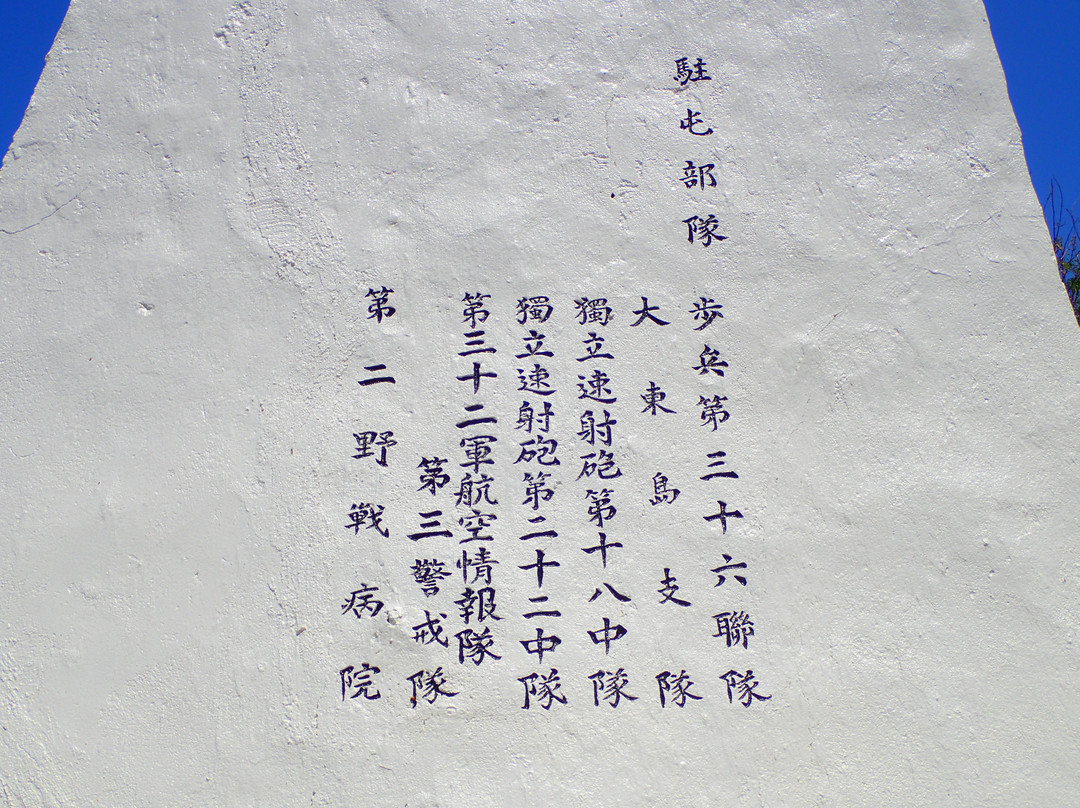 駐屯部隊
歩兵第三十六聯隊
大東島支隊
獨立速射砲第十八中隊
獨立速射砲第二十二中隊
第三十二軍航空情報隊
第三警戒隊
第二野戦病院